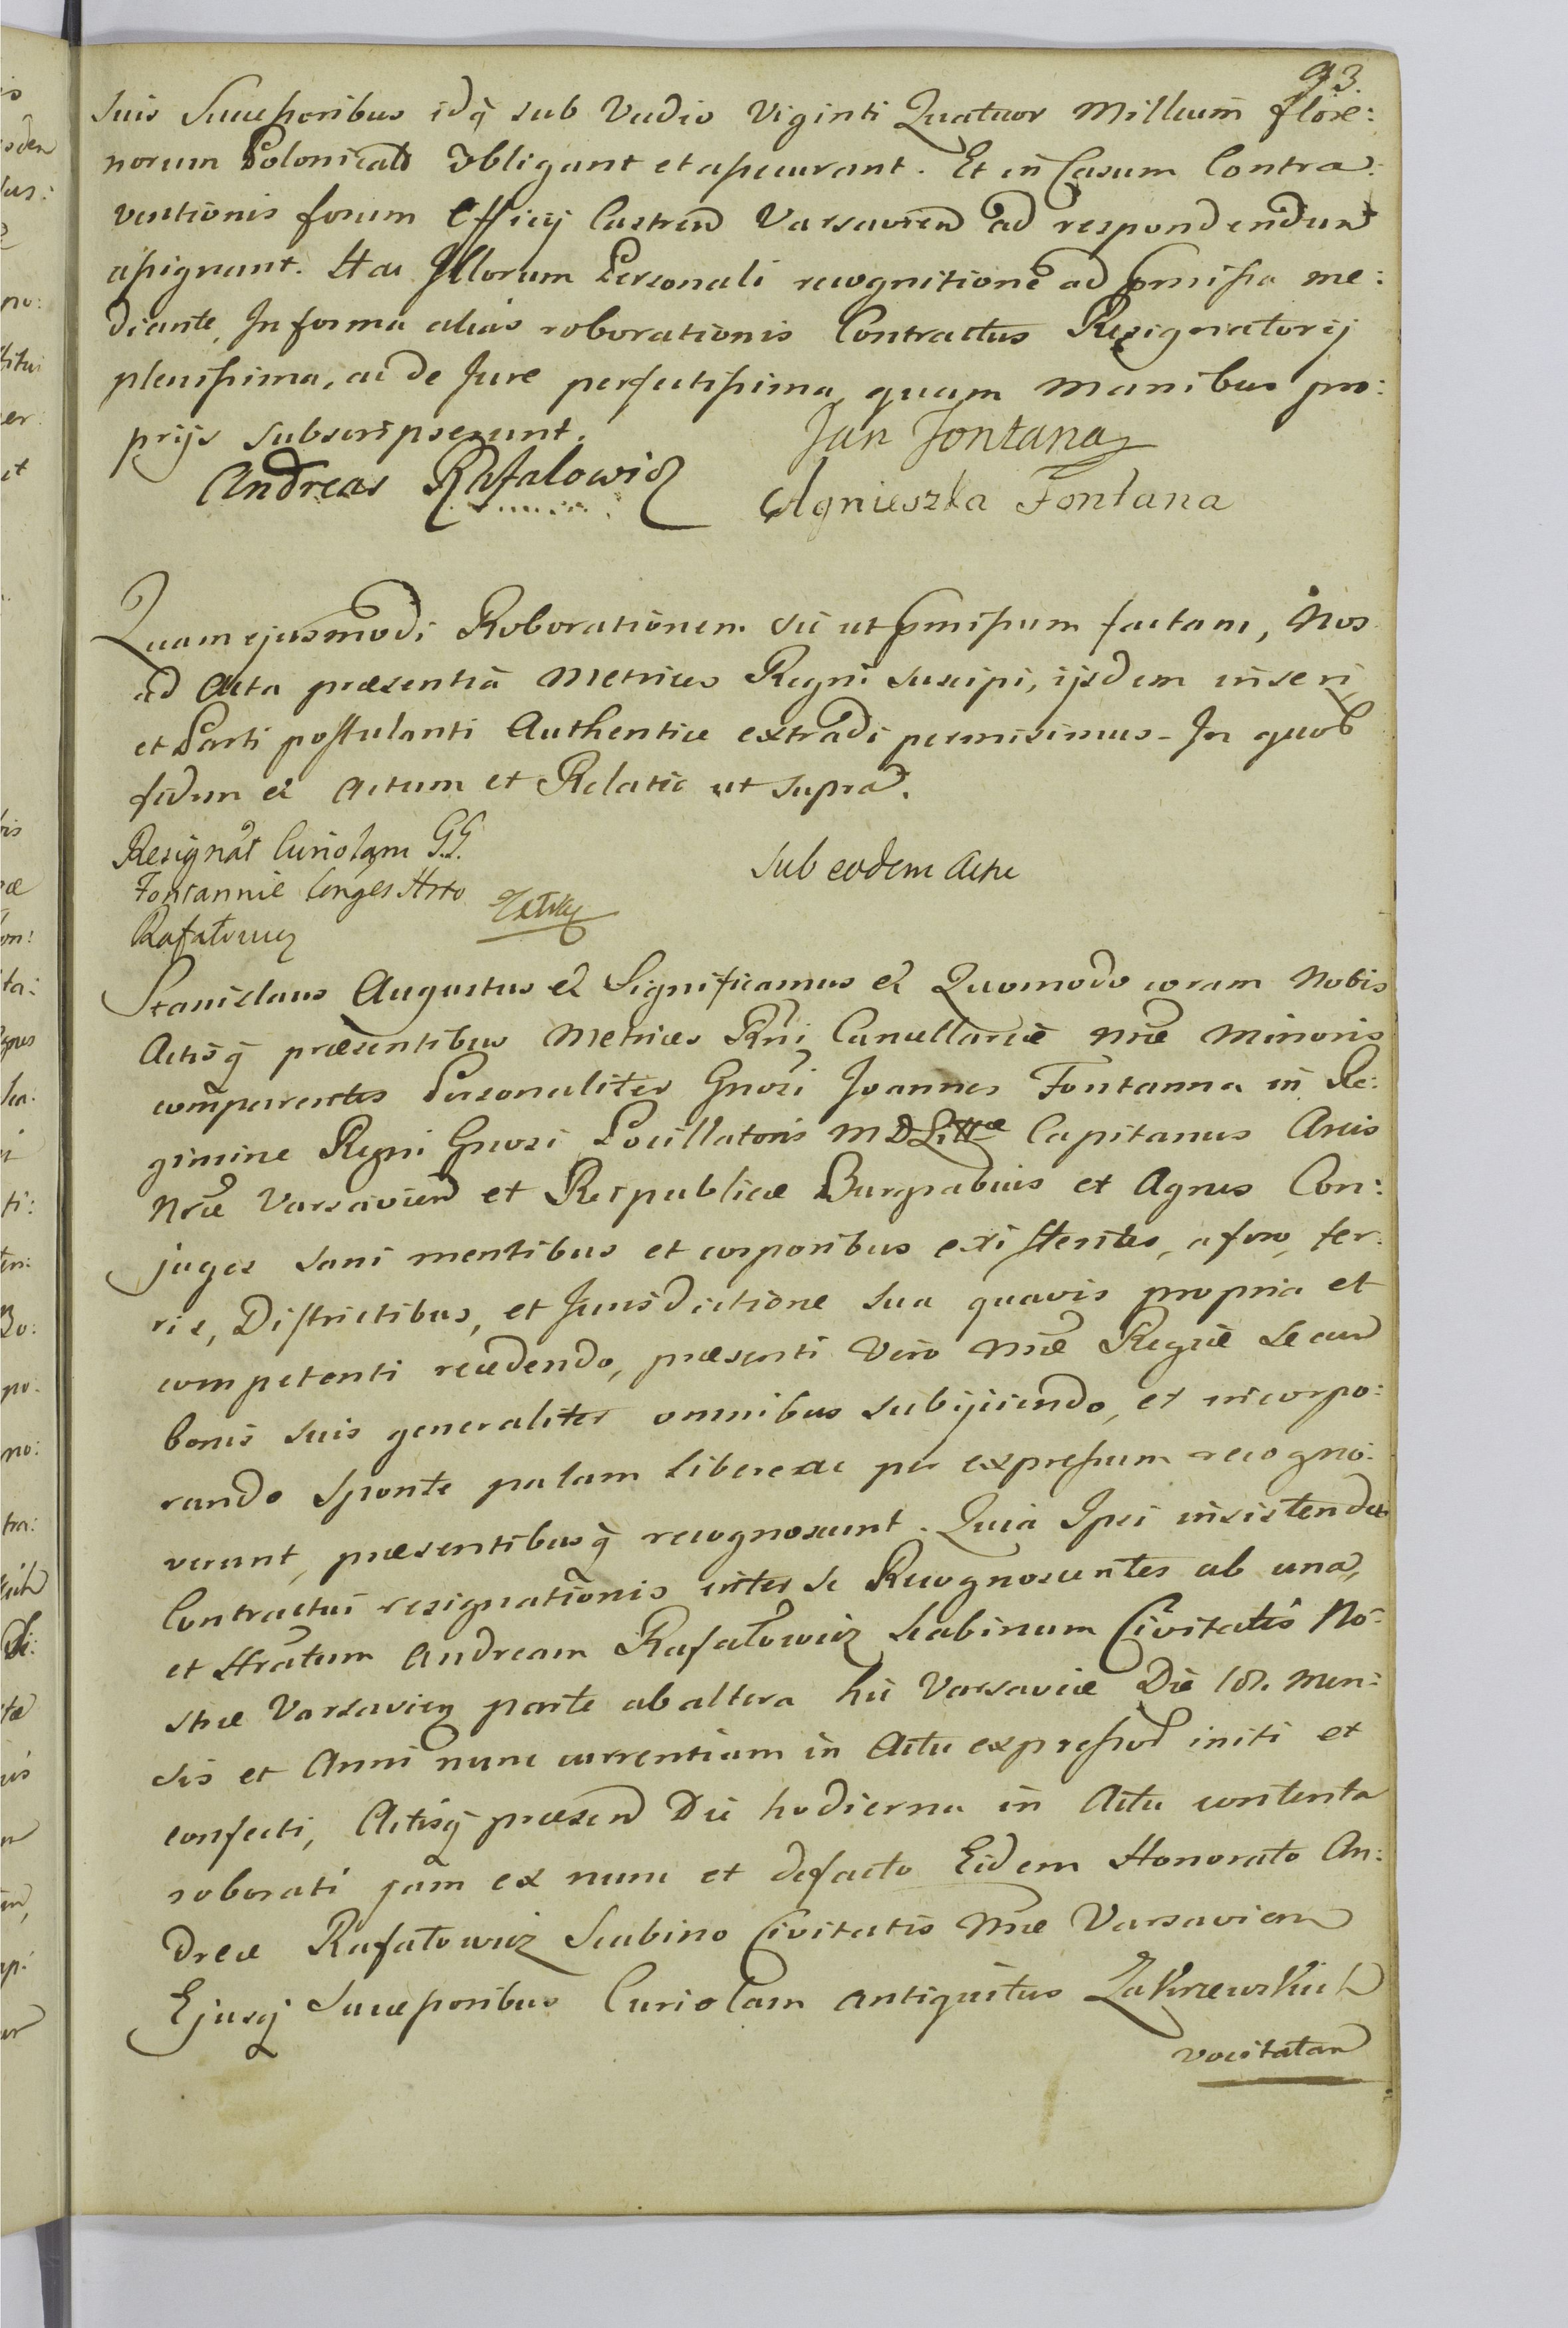 93.
suis Successoribus idq̃ sub Vadio Viginti Quatuor Millium flore:
norum Polonical obligant et assecurant. Et in Casum Contra:
ventionis forum Officij Castren Varsavien ad respondendum
assignant. Hac Illorum Personali recognitione ad pmissa me:
diante, In forma alias roborationis Contractus Resignatorij
plenissima, ac de Jure perfectissima, quam manibus pro:
prijs subscripserunt.
Jan Fontana
Andreas Rafalowicz
Agnieszka Fontana
Quam ejusmodi Roborationem sic ut pmissum factam, Nos
ad Acta præsentia Metrices Regni suscipi, ijsdem inseri,
et Parti postulanti Authentice extradi permisimus - In quor
fidem et Actum et Relatio ut supra.
Resignat Curiolam G.G.
Fontannie Conges Hrto
Rafałowicz
Sub eodem Actu
Stanislaus Augustus et Significamus et Quomodo coram Nobis
Actisq̃ præsentibus Metrices Rni Cancellariæ nræ Minoris
comparentes Personaliter Gnosi Joannes Fontanna in Re:
gimine Regni Gnosi Pocillatoris M D Littæ Capitanus Arcis
Nræ Varsavien et Reipublicæ Burgrabius et Agnes Con:
juges sani mentibus et corporibus existentes, a foro, ter:
ris, Districtibus, et Jurisdictione sua quavis propria et
competenti recedendo, præsenti Vero Nræ Regiæ se cum
bonis suis generaliter omnibus subijiciendo, et incorpo:
rando sponte palam libere ac per expressum recogno:
verunt, præsentibusq̃ recognoscunt. Quia Ipsi insistendo
Contractui resignationis inter se Recognoscentes ab una,
et Hratum Andream Rafałowicz Scabinum Civitatis No:
stræ Varsavien parte ab altera hic Varsaviæ Die 18. Men:
sis et Anni nunc currentium in Actu expressor initi et
confecti, Actisq̃ præsen Die hodierna in Actu contenta
roborati jam ex nunc et defacto Eidem Honorato An:
dreæ Rafałowicz Scabino Civitatis Nræ Varsavien
Ejusq̃ Successoribus Curiolam antiquitus Zakrzewskich
vocitatam